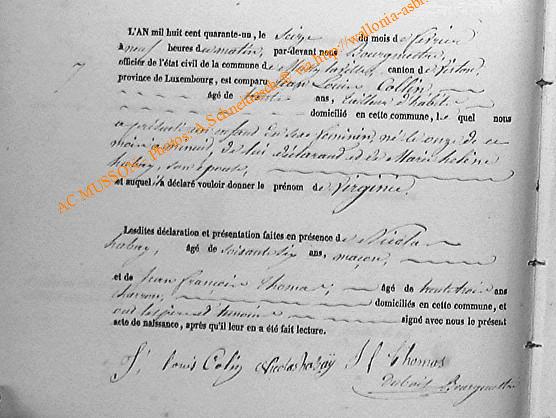 7
L'AN mil huit cent quarante-un, le Seize du mois de février
à neuf heures du matin, par-devant nous Bourgmestre,
officier de l'état civil de la commune de Musson canton de Virton,
province de Luxembourg, est comparu Jean Louis Collin,
âgé de trente ans, tailleur d'habits
domicilié en cette commune, le quel nous
a présenté un enfant du sexe féminin, né le onze de ce
mois à minuit, de lui déclarant et de Marie helène
habay, son épouse,
et auquel il a déclaré vouloir donner le prénom de Virginie
Lesdites déclaration et présentation faites en présence de Nicolas
habay, âgé de soixante six ans, maçon,
et de Jean francois Thomas, âgé de trente trois ans
charron, domiciliés en cette commune, et
ont les père et témoins signé avec nous le présent
acte de naissance, après qu'il leur en a été fait lecture.
J. Louis Colin Nicolas habaÿ J f Thomas
Dubois Bourgmestre
AC MUSSON - Photos: A. Schneidesch via http://wallonia-asb